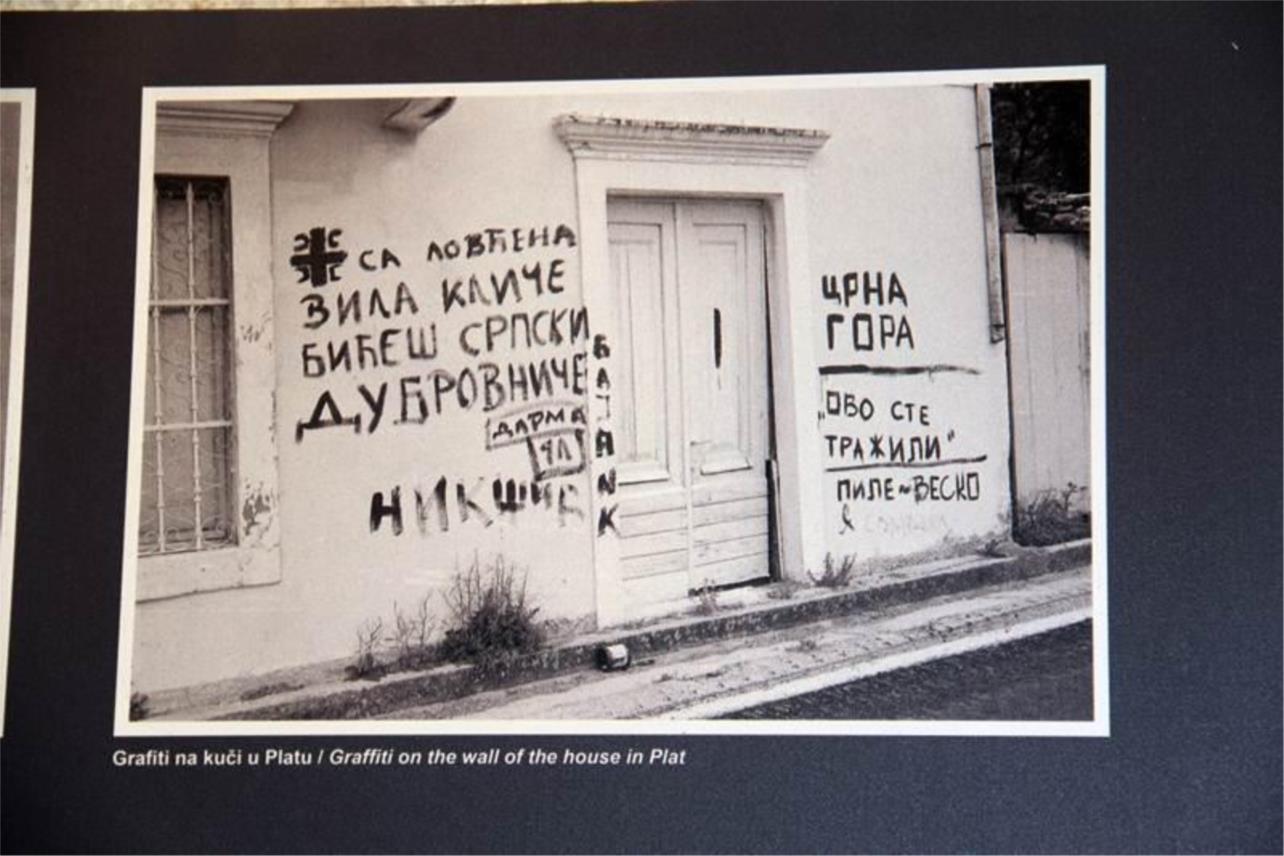 СА ЛОВЋЕНА
ВИЛА КЛИЧЕ
БИЋЕШ СРПСКИ
ДУБРОВНИЧЕ
ДАРМА
НИКШИЋ
ЦРНА
ГОРА
„ОВО СТЕ
ТРАЖИЛИ"
ПИЛЕ~ВЕСКО
Grafiti na kuči u Platu / Graffiti on the wall of the house in Plat